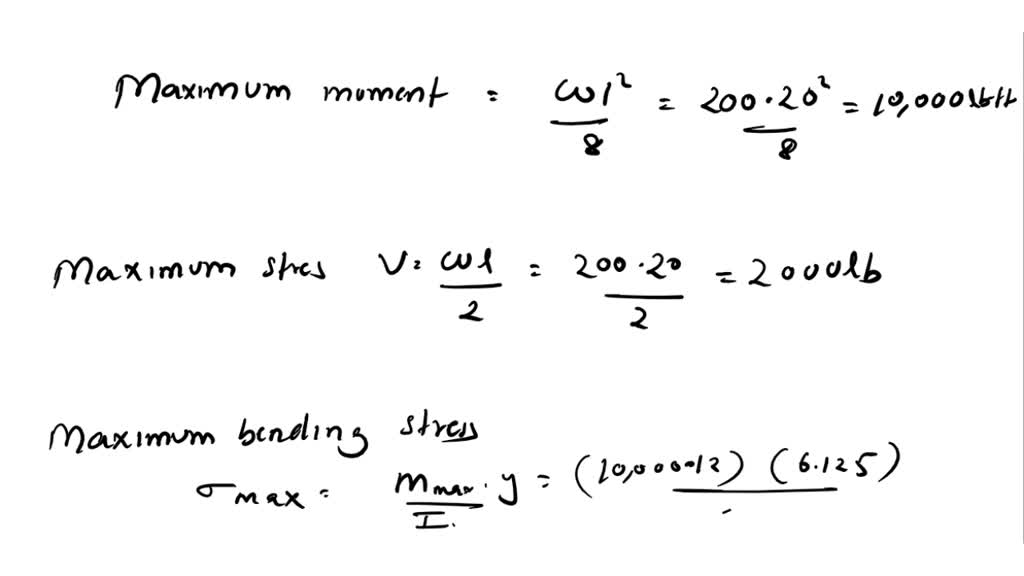 Maximum moment = ωl²/8 = 200·20²/8 = 10,000lbft
Maximum stres V = ωl/2 = 200·20/2 = 2000lb
Maximum bending stress
σmax = Mmax·y/I = (10,000·12) (6.125)